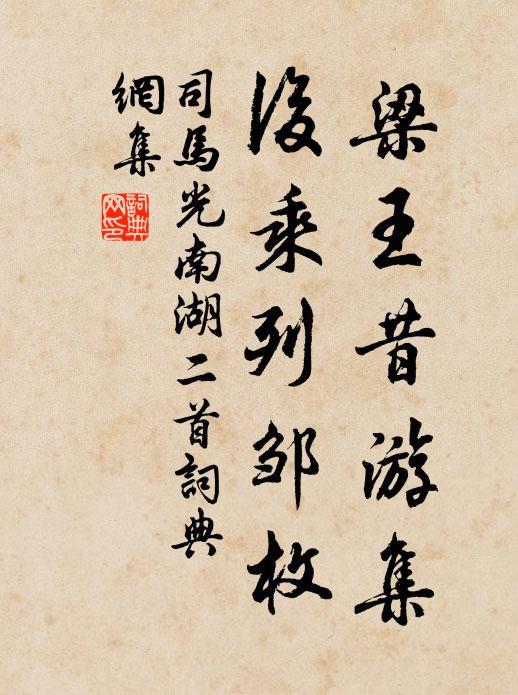 梁王昔游集
後乘列邹枚
司馬光南湖二首詞典
網集
詞典网印